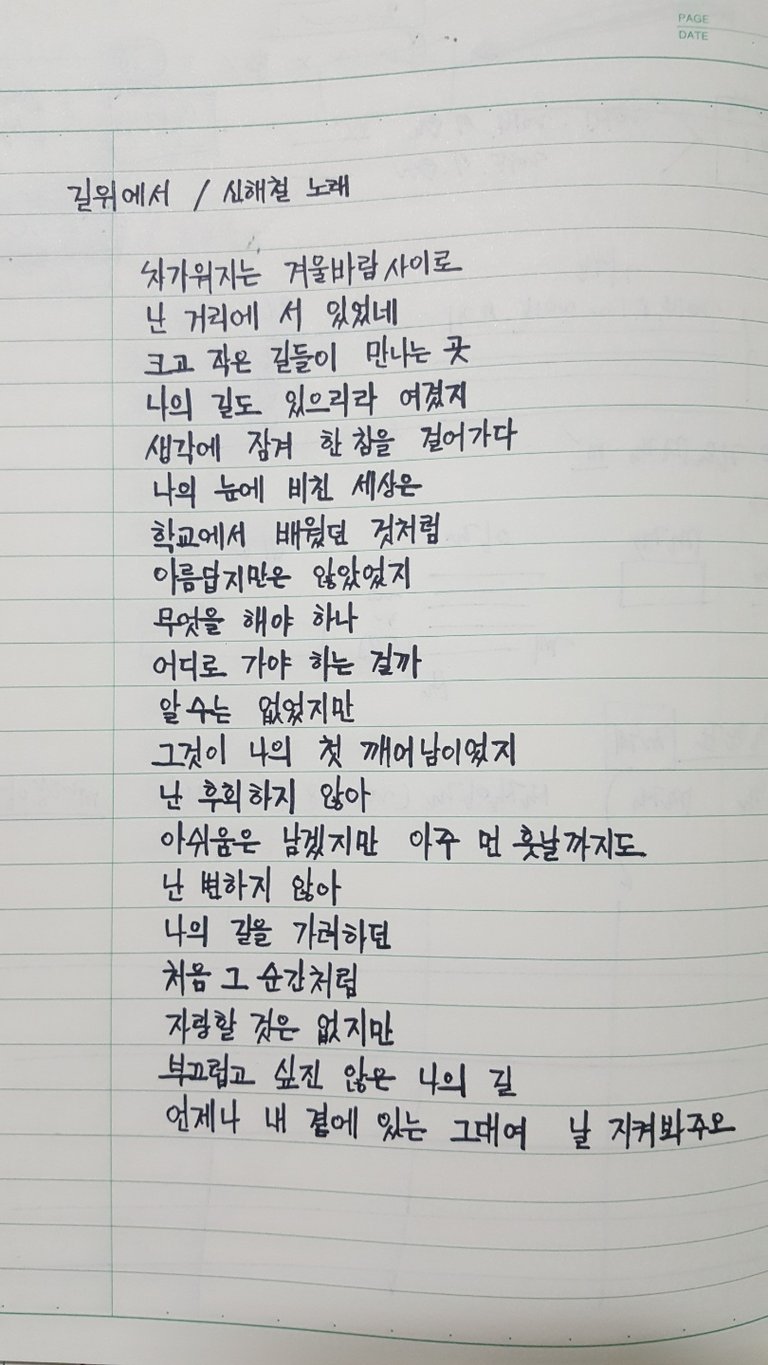 PAGE
DATE
길위에서 / 신해철 노래
차가워지는 겨울바람 사이로
난 거리에 서 있었네
크고 작은 길들이 만나는 곳
나의 길도 있으리라 여겼지
생각에 잠겨 한참을 걸어가다
나의 눈에 비친 세상은
학교에서 배웠던 것처럼
아름답지만은 않았었지
무엇을 해야 하나
어디로 가야 하는 걸까
알 수는 없었지만
그것이 나의 첫 깨어남이었지
난 후회하지 않아
아쉬움은 남겠지만 아주 먼 훗날까지도
난 변하지 않아
나의 길을 가려하던
처음 그 순간처럼
자랑할 것은 없지만
부끄럽고 싶진 않은 나의 길
언제나 내 곁에 있는 그대여 날 지켜봐주오